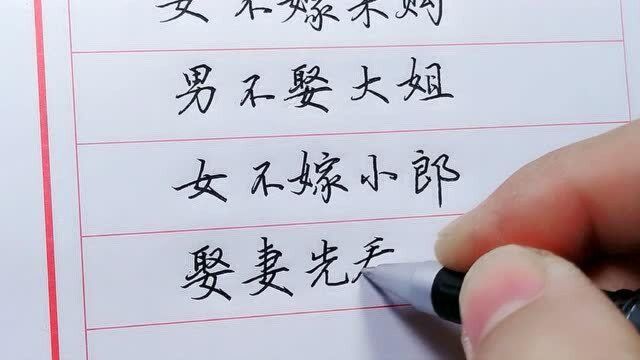 女不嫁采购
男不娶大姐
女不嫁小郎
娶妻先